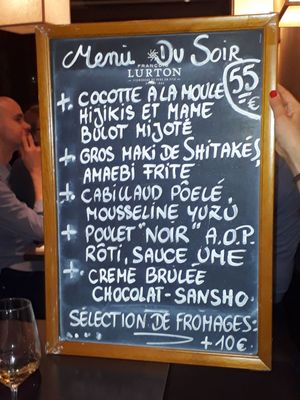 Menu Du Soir
FRANÇOIS
LURTON
55 €
+ COCOTTE A LA MOULE
HIJIKIS ET MAME
BULOT MIJOTÉ
+ GROS MAKI DE SHITAKÉS,
AMAEBI FRITE
+ CABILLAUD PÔELÉ,
MOUSSELINE YUZU
+ POULET "NOIR" A.O.P.
RÔTI, SAUCE UME
+ CREME BRÛLÉE
CHOCOLAT-SANSHO
SÉLECTION DE FROMAGES:
+10€